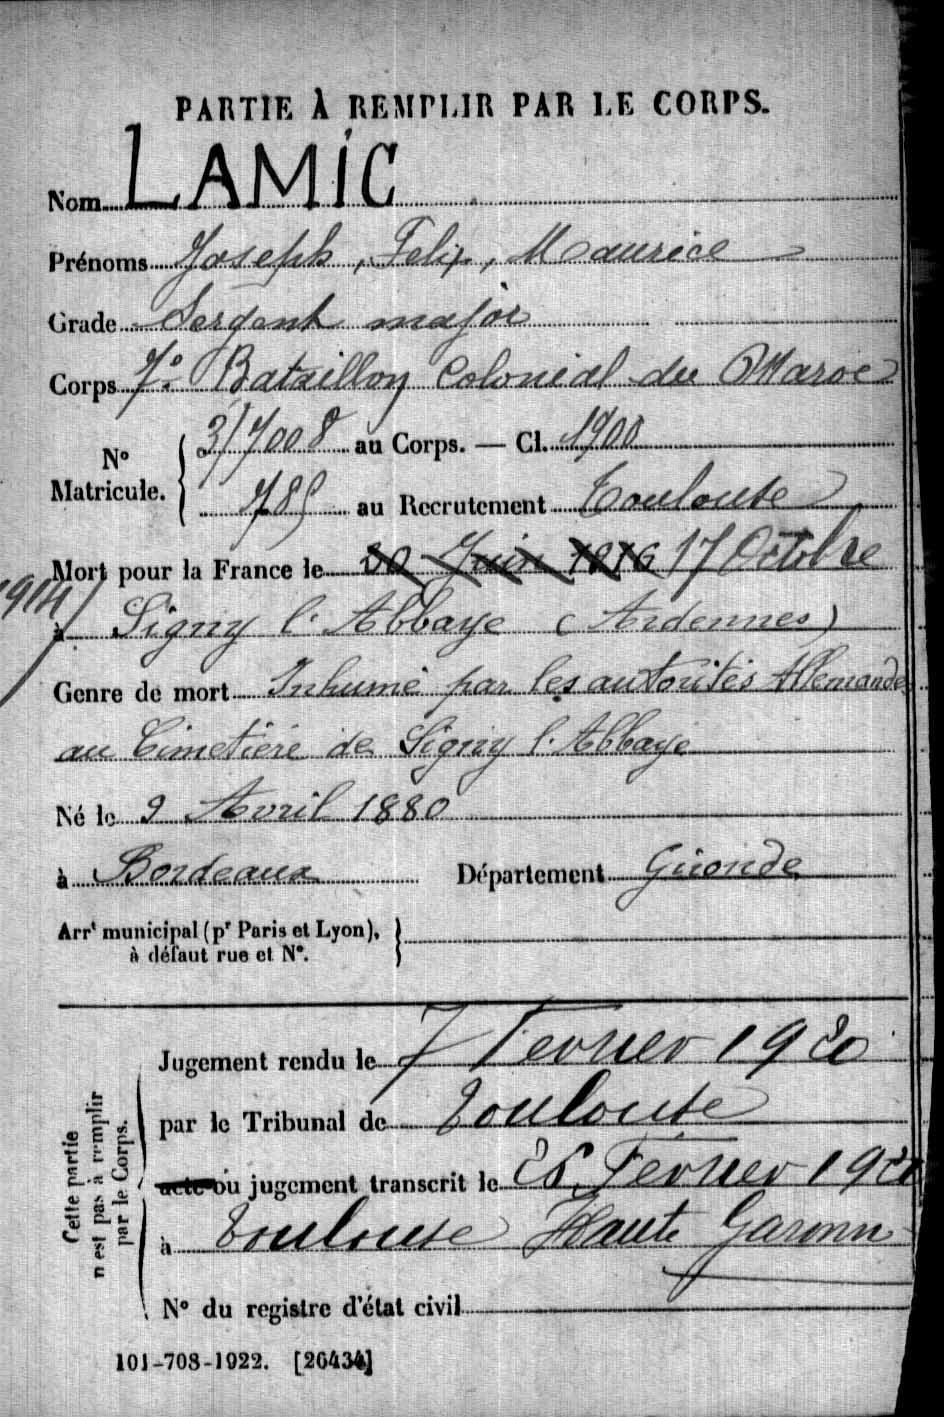 PARTIE À REMPLIR PAR LE CORPS.
Nom LAMIC
Prénoms Joseph, Felix, Maurice
Grade Sergent major
Corps 7° Bataillon Colonial du Maroc
N° Matricule. 7008 au Corps. — Cl. 1900
785 au Recrutement Toulouse
Mort pour la France le 30 Juin 1916 17 Octobre
1914
à Signy l'Abbaye (Ardennes)
Genre de mort Inhumé par les autorités Allemandes
au Cimetière de Signy l'Abbaye
Né le 9 Avril 1880
à Bordeaux Département Gironde
Arrt municipal (pr Paris et Lyon),
à défaut rue et N°.
Jugement rendu le 7 Fevrier 1920
par le Tribunal de Toulouse
acte ou jugement transcrit le Fevrier 1920
à Toulouse Haute Garonne
N° du registre d'état civil
Cette partie
n'est pas à remplir
par le Corps.
101-708-1922. [26434]